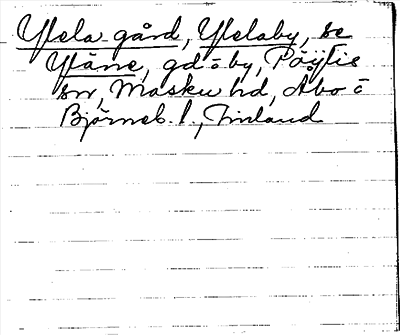 Ylela gård, Ylelaby, se
Yläne, gd o by, Pöytis
sn, Masku hd, Åbo o
Björneb. l., Finland